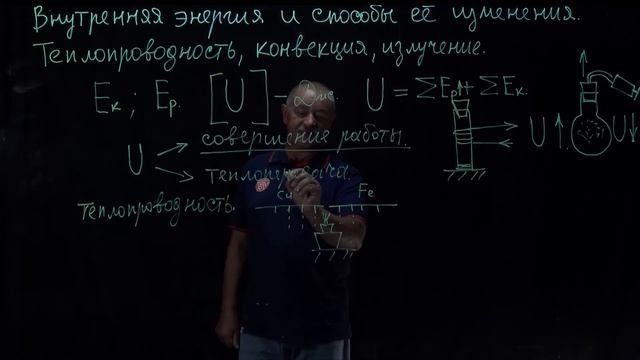 Внутренняя энергия и способы её изменения.
Теплопроводность, конвекция, излучение.
Eк ; Eр. [U] – Дж. U = ΣEр + ΣEк.
совершение работы.
U
U ↑. U↓
теплопередача.
теплопроводность. Cu Fe